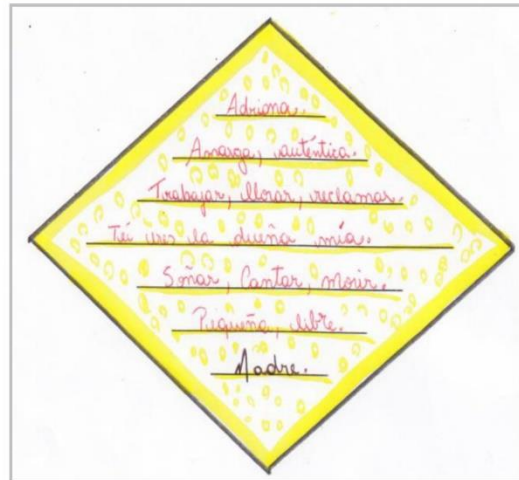 Adriana.
Amarga, auténtica.
Trabajar, llorar, reclamar.
Tú eres la dueña mía.
Soñar, Cantar, morir.
Pequeña, libre.
Madre.